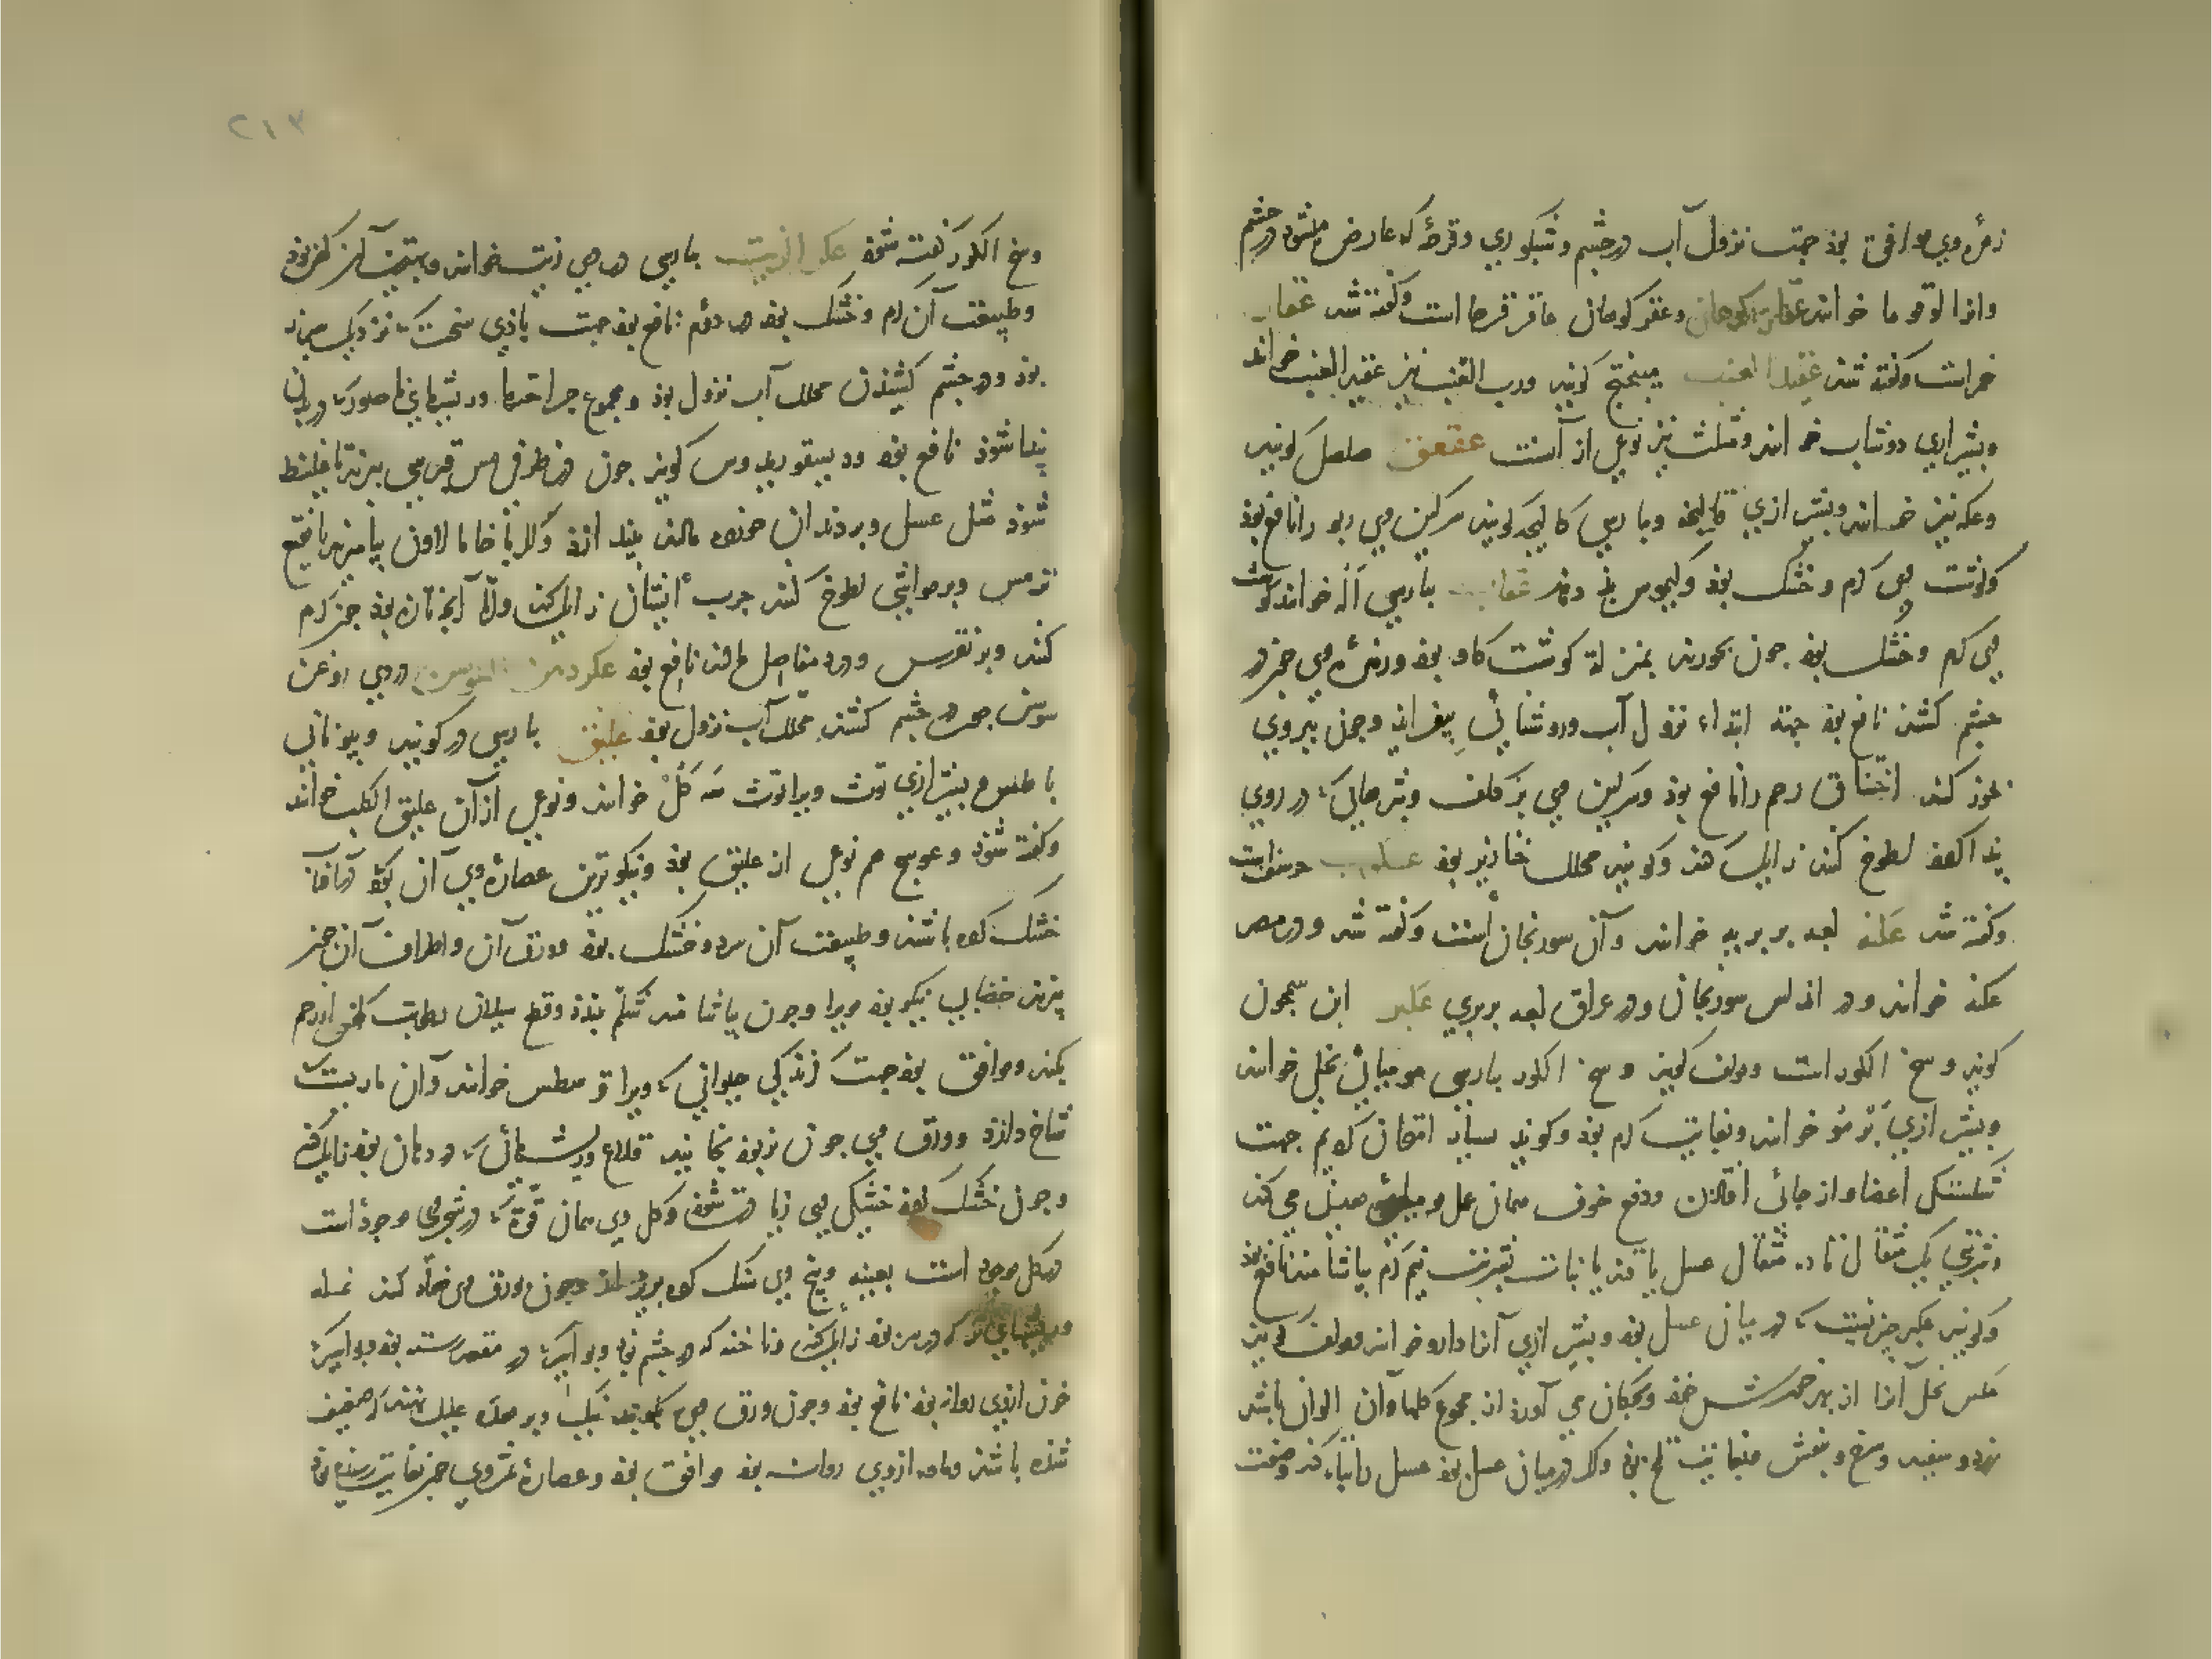 زهرهٔ وی موافق بود جهت نزول آب در چشم و شبکوری و قرحهٔ که عارض میشود در چشم
و انرا لوقوما خوانند عقار کوهان و عقر کوهان عاقر قرحا است و کفته شد عقار
خمراست و کفته شد عقید العنب میبختج کویند و رب العنب نیز عقید العنب خوانند
و بشیرازی دوشاب خوانند و مثلث نیز نوعی از آنست عقعق صلصل کویند
و عکه نیز خوانند و بشیرازی قالیجه و بپارسی کالیجه کویند سرکین وی ربو را نافع بود
و کوشت وی کرم و خشک بود و کیموس بد دهد عقاب بپارسی اله خوانند کوشت
وی کرم و خشک بود چون بخورند بمنزلهٔ کوشت کاو بود و زهرهٔ وی چون در
چشم کشند نافع بود جهة ابتداء نزول آب و روشنائی بیفزاید و چون بپر وی
بخور کنند اختناق رحم را نافع بود و سرکین وی بر کلف و بثرهائی که در روی
پیدا کردد لطوخ کنند زایل کند و کویند محلل خنازیر بود
و کفته شد عکنه لعبه بربریه خوانند و آن سورنجان است و کفته شد و در مصر
عکنه خوانند و در اندلس سورنجان و در عراق لعبه بربری عکبر ابن سمجون
کوید وسخ الکور است و مولف کوید وسخ الکور بپارسی مومیائی نخلی خوانند
و بشیرازی برمو خوانند و بغایت کرم بود و کویند بسیار امتحان کردیم جهت
شکستکی اعضا و از جائی افتادن و دفع خوف همان عمل مومیائی معدنی می کند
و شربتی یک مثقال تا دو مثقال عسل یا قند یا نبات بشربت نیم کرم بیاشامند نافع بود
و کویند عکبر چیزیست که در میان عسل بود و بشیرازی آنرا دارو خوانند مولف کوید
مکس نحل آنرا از بهر خورش خود و بچکان می آورد از مجموع کلها و آن الوان باشد
زرد و سفید و سرخ و بنفش و بغایت تلخ بود و اکر در میان عسل بود عسل را تباه کند و صفت
٢١٣
وسخ الکور کفته شود عکر الزیت بپارسی دردی زیت خوانند و بهترین آن کهن بود
و طبیعت آن کرم و خشک بود در دوم نافع بود جهت بادی سخت که نزدیک بمزند
بود و در چشم کشیدن محلل آب نزول بود و مجموع جراحتها و ریشها را
پیدا شود نافع بود و دیسقوریدوس کوید چون در ظرفی مس قبرسی بپزند تا غلیظ
شود مثل عسل و بر دندان خورده مالند بیندازد و اکر با خامالاون بیامیزند با نقیع
ترمس و بر مواشی لطوخ کنند جرب ایشان زایل کند و اما آنچه تازه بود چون کرم
کنند و بر نقرس و درد مفاصل مالند نافع بود عکر دهن السوسن دردی روغن
سوسن چون در چشم کشند محلل آب نزول بود علیق بپارسی در کویند و بیونانی
باطس و بشیرازی توث و برا توث سه کل خوانند و نوعی از آن علیق الکلب خوانند
و کفته شود و عوسج هم نوعی از علیق بود و نیکوترین عصارهٔ وی آن بود که در آفتاب
خشک کرده باشند و طبیعت آن سرد و خشک بود و ورق آن و اطراف آن چون
بپزند خضاب نیکو بود مویرا و چون بیاشامند شکم ببندد و قطع سیلان رطوبت کهن از رحم
بکند و موافق بود جهت کزندکی حیوانی که ویرا قرسطس خوانند و آن ماریست
شاخ دارد و ورق وی چون تر بود بخایند قلاع و ریشهائی که در دهان بود زایل کند
و چون خشک بود خشکی وی زیادت شود و کل وی همان قوة که در ثمر وی موجود است
در کل موجود است بعینه و بیخ وی سنک کرده بریزاند و چون بورق وی ضماد کنند نمله
و ریشهای تر که در سر بود زایل کند و ناخنه که در چشم بود و بواسیر که در مقعد رسته بود و بواسیر که
خون ازوی روانه بود نافع بود و چون ورق وی بکوبند نیک و بر معدهٔ علیل نهند که ضعیف
شده باشد و ماده ازوی روانه بود موافق بود و عصارهٔ ثمر وی چون بغایت رسیده بود